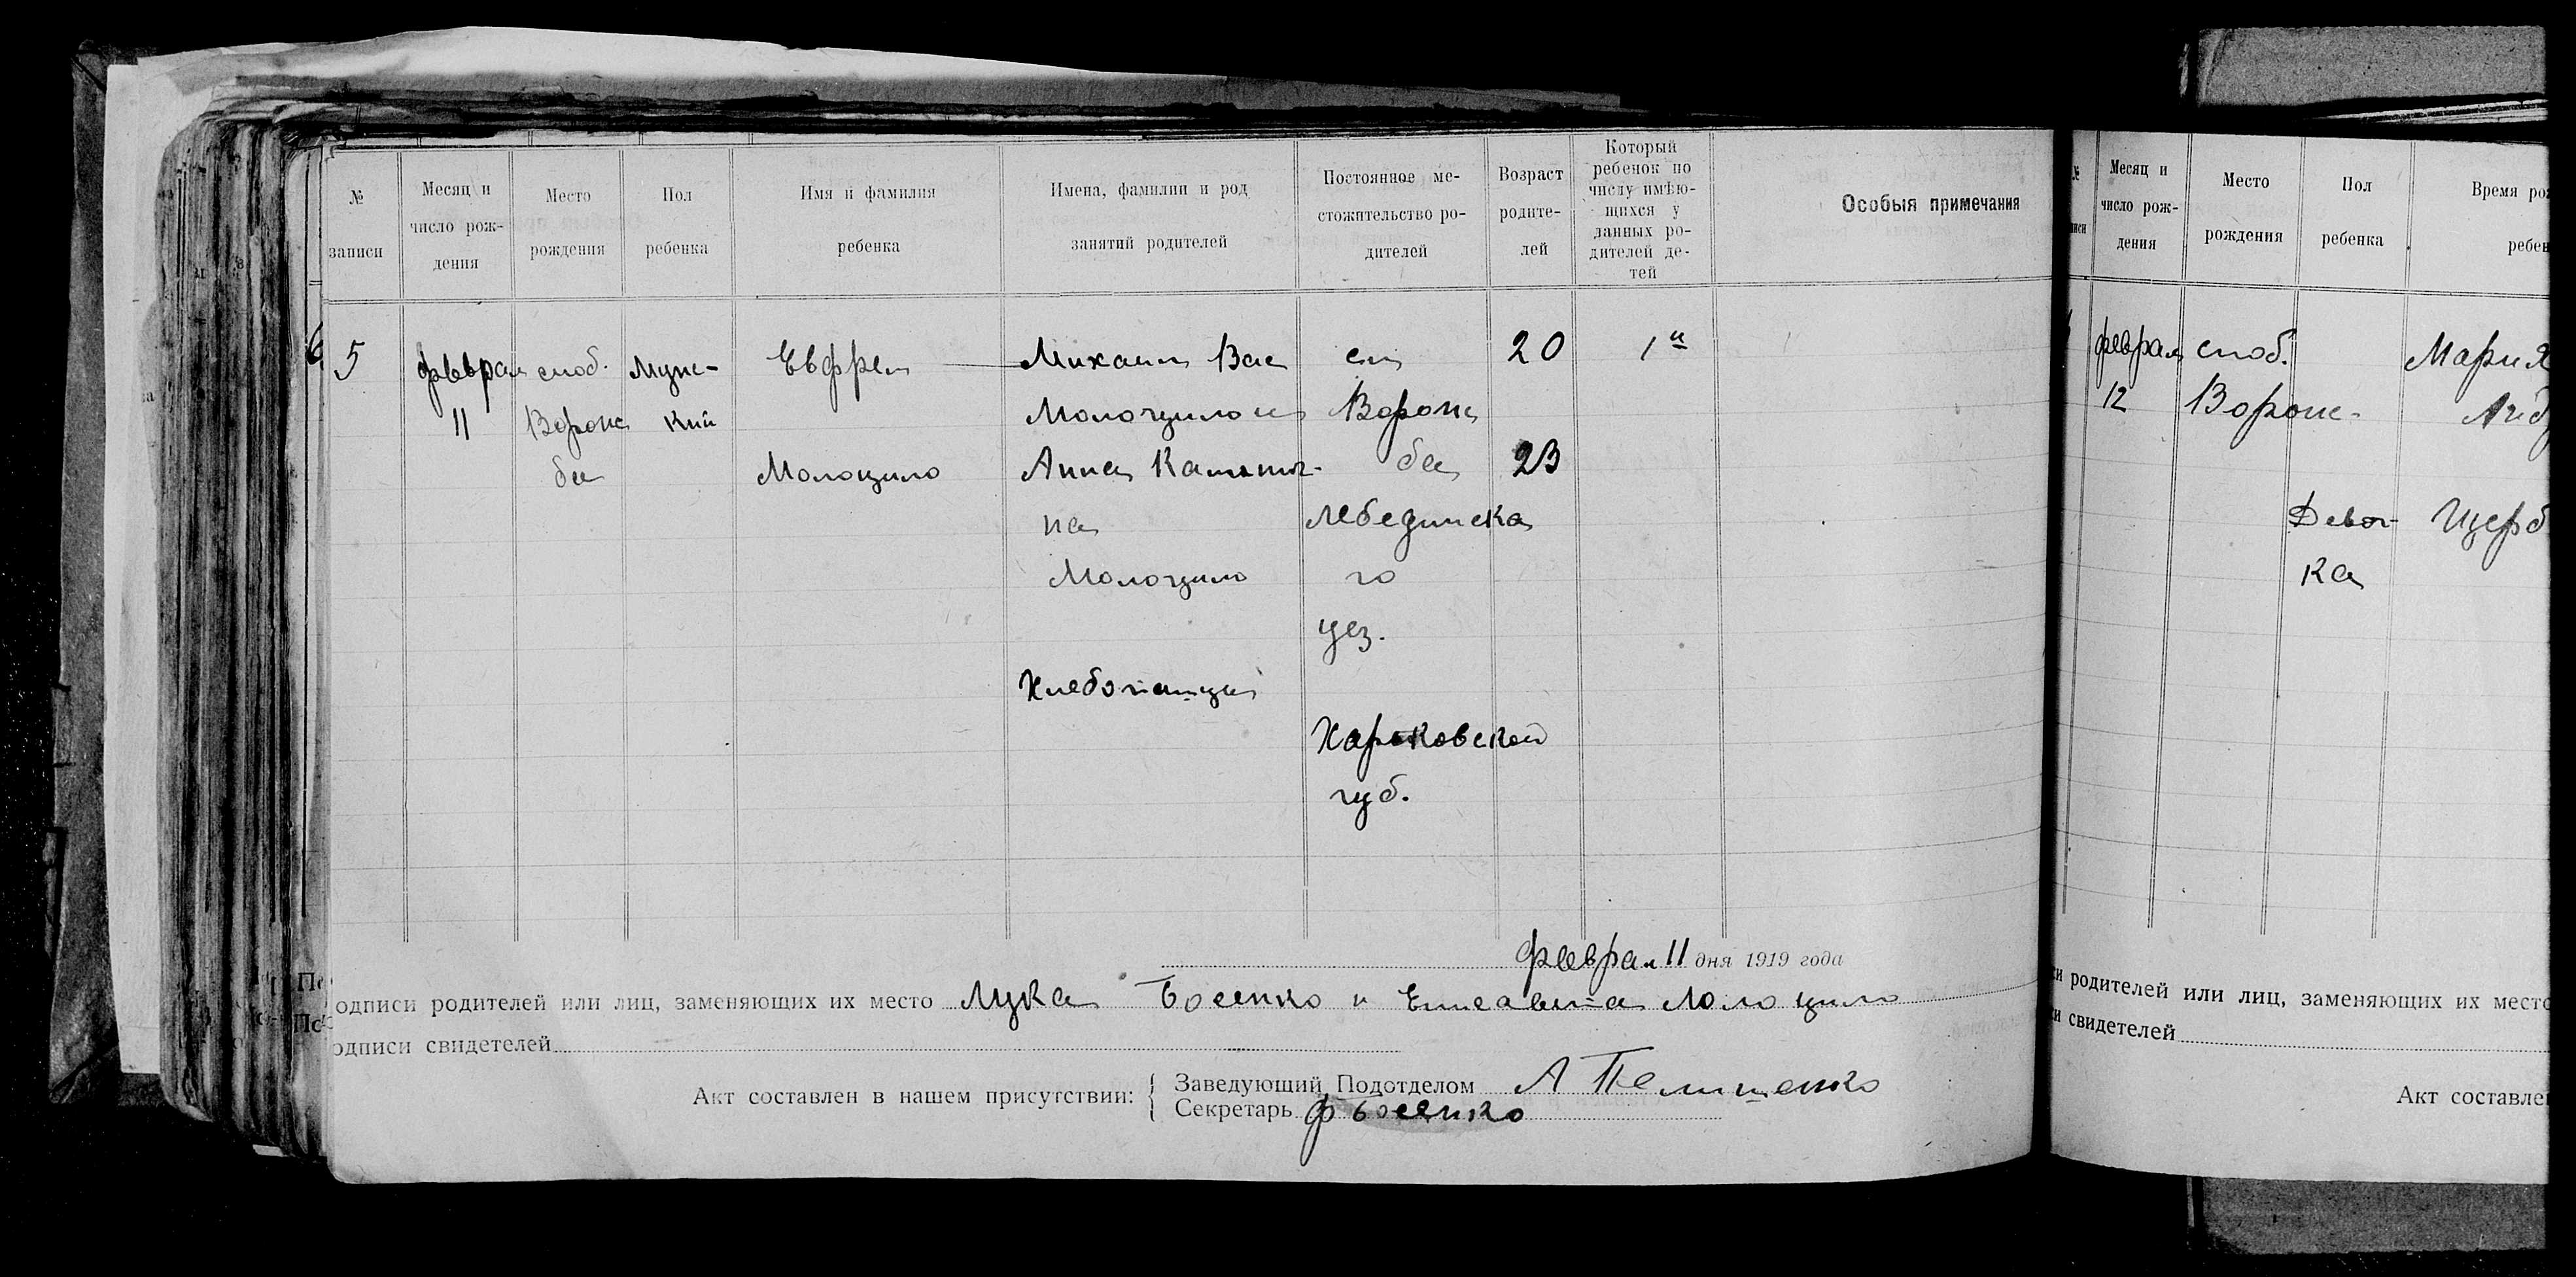 № записи
Месяц и число рож-
дения
Место рождения
Пол ребенка
Имя и фамилия ребенка
Имена, фамилии и род занятий родителей
Постоянное ме-
стожительство ро-
дителей
Возраст родите-
лей
Который ребенок по числу имѣю-
щихся у данных ро-
дителей де-
тей
Особыя примечания
5
феврал
11
слоб.
Ворож
ба
Мужс-
кий
Евфрем
Молоцило
Михаил Вас
Молоцило
Анна
на
Молоцило
Хлебопашцы
Ворож
ба
Лебединска
го
уез.
Харьковской
губ.
20
23
1й
феврал 11 дня 1919 года
одписи родителей или лиц, заменяющих их место Лука Босенко и Елисавета Молоцило
одписи свидетелей
Акт составлен в нашем присутствии:
Заведующий Подотделом А
Секретарь Ф Босенко
№
Месяц и
число рож-
дения
Место
рождения
Пол
ребенка
Время ро
ребен
феврал
12
слоб.
Ворож-
Девоч-
ка
Мария
Щерб
и родителей или лиц, заменяющих их место
и свидетелей
Акт составле